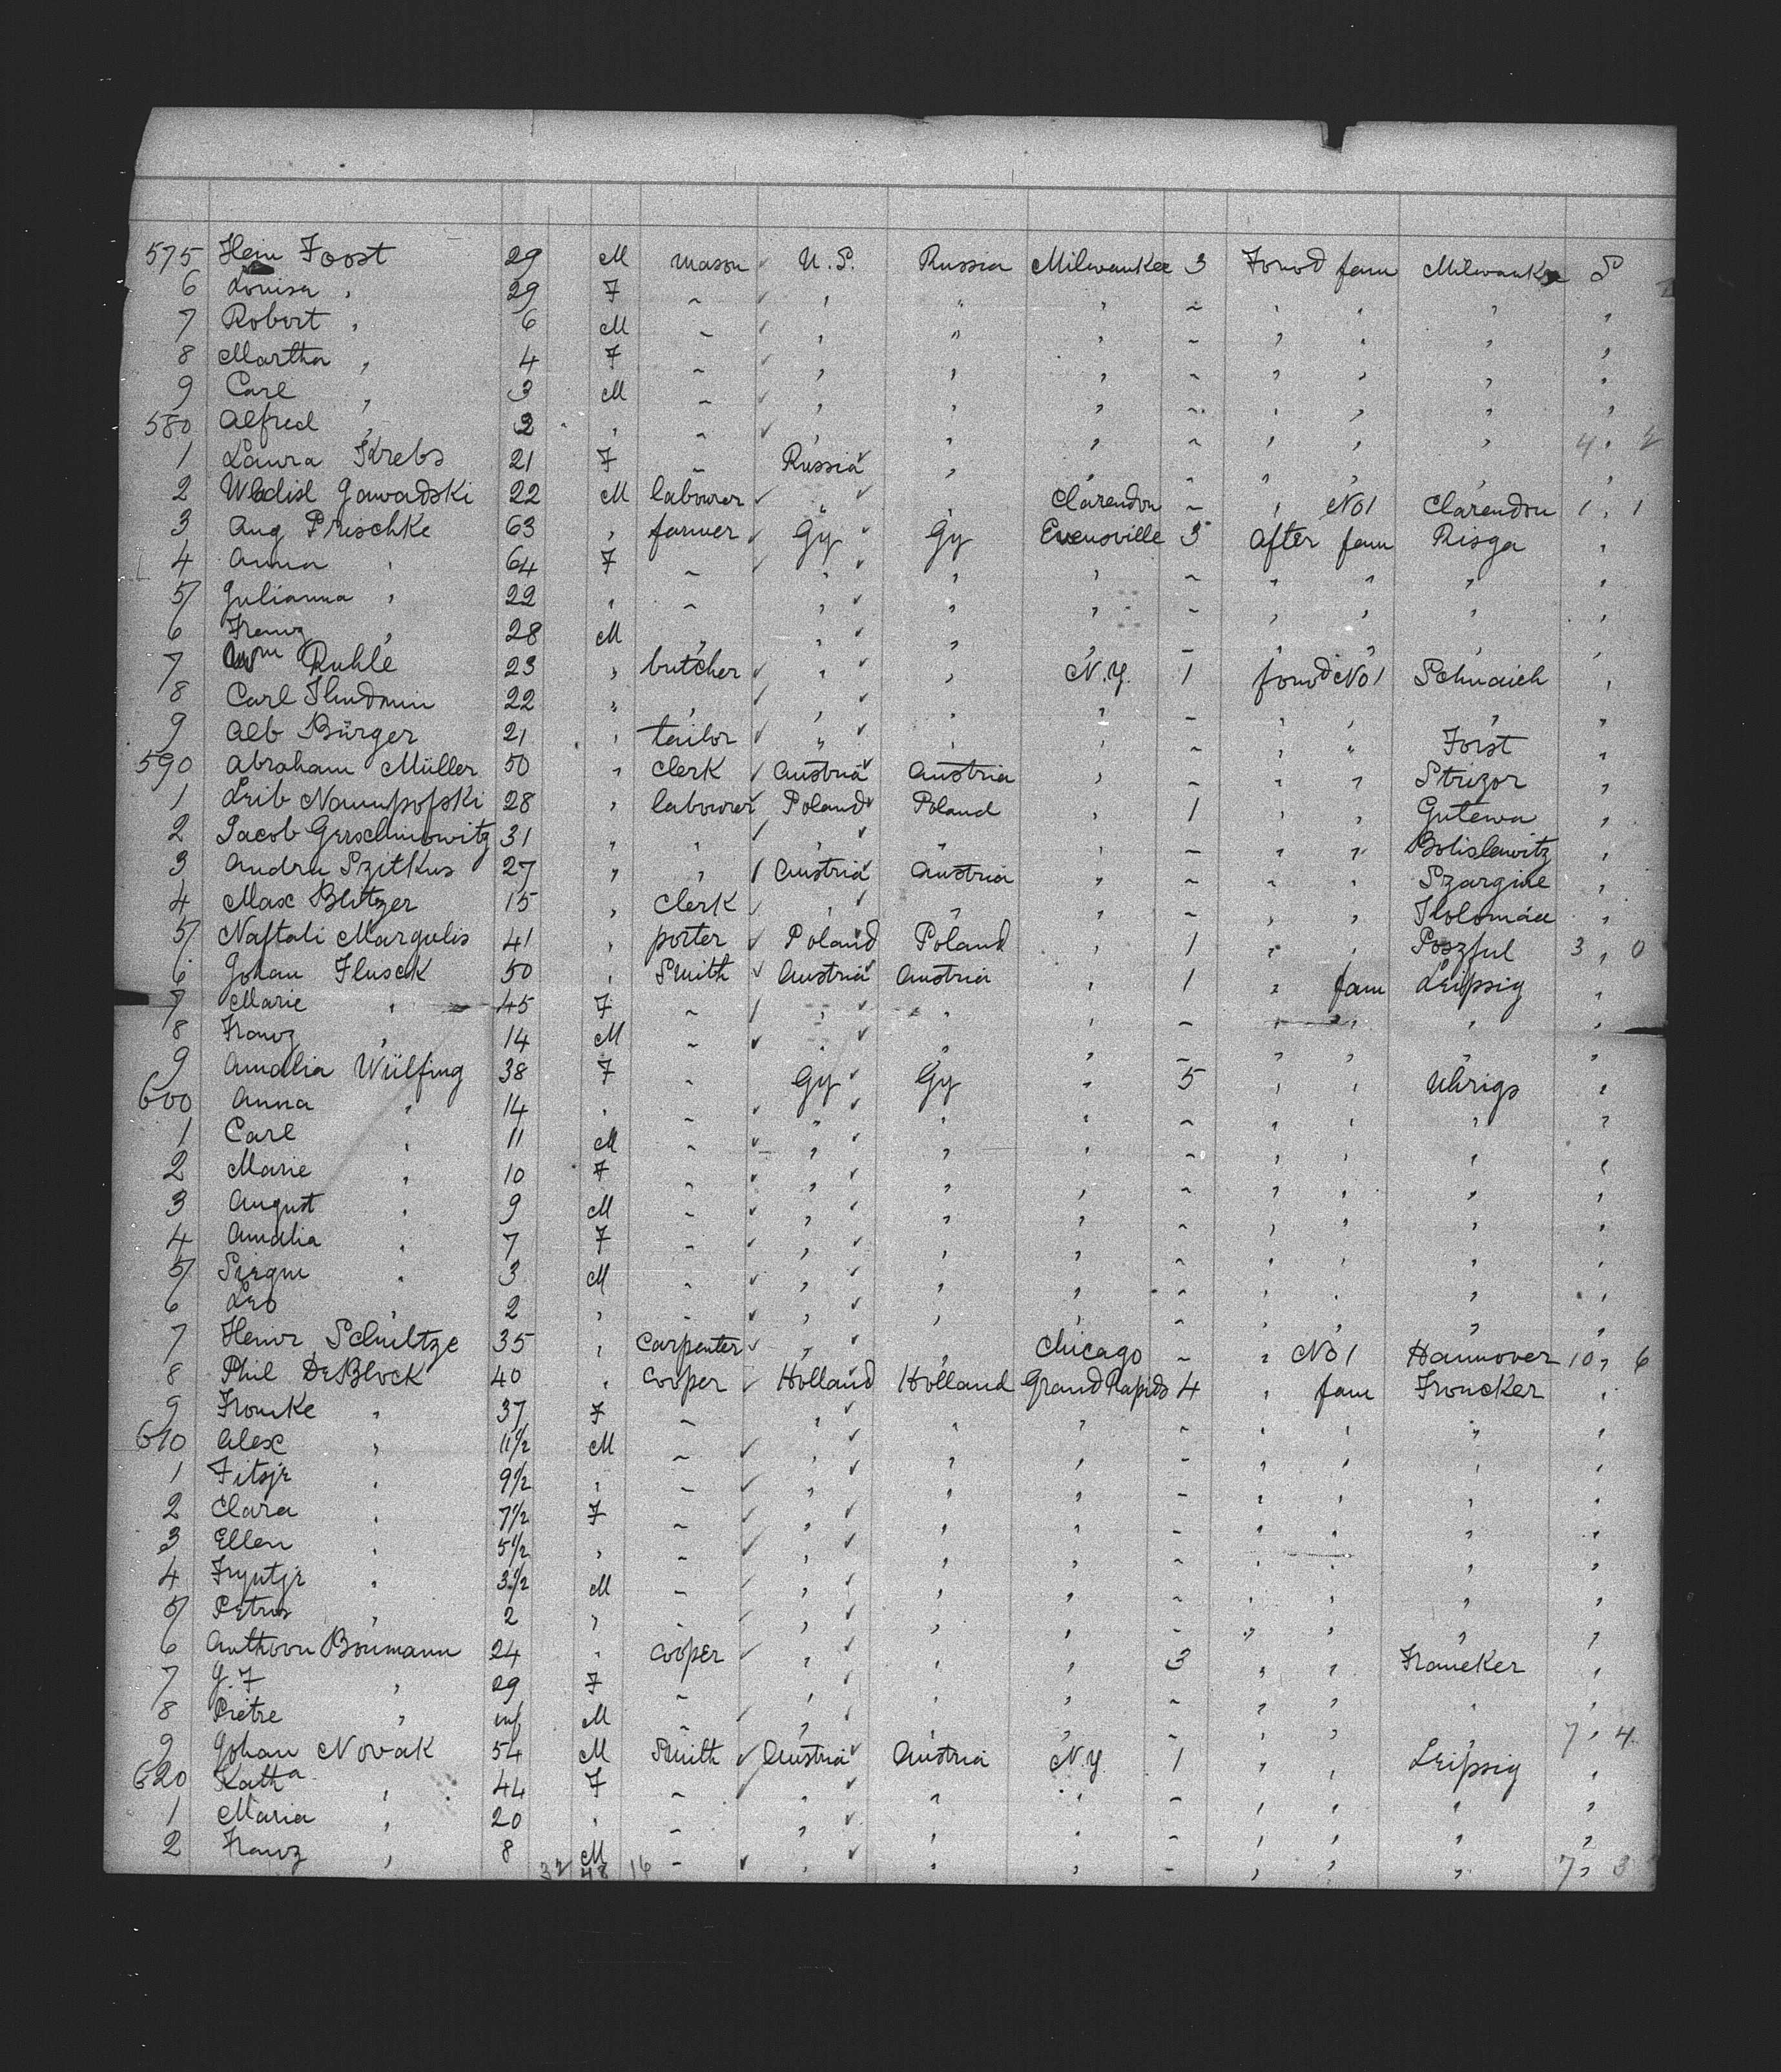 575 Hein Joost 29 M mason U.S. Russia Milwaukee 3 Forwd fam Milwaukee S
6 Louisa " 29 F " " " " " " " " "
7 Robert " 6 M " " " " " " " " "
8 Martha " 4 F " " " " " " " " "
9 Carl " 3 M " " " " " " " " "
580 Alfred " 2 " " " " " " " " " 4 " 2
1 Laura Krebs 21 F " Russia " " " " " " "
2 Wladisl Gawadski 22 M labourer " " Clarendon " " No 1 Clarendon 1 " 1
3 Aug Prischke 63 " farmer Gy Gy Evensville 3 After fam Risga "
4 Anna " 64 F " " " " " " " " "
5 Julianna " 22 " " " " " " " " " "
6 Franz " 28 M " " " " " " " " "
7 Wm Ruhle 23 " butcher " " N.Y. 1 forwd No 1 Schnaich "
8 Carl 22 " " " " " " " " " "
9 Alb Bürger 21 " tailor " " " " " " Forst "
590 Abraham Müller 50 " clerk Austria Austria " " " " Strizor "
1 Leib 28 " labourer Poland Poland " 1 " " Gutewa "
2 Jacob Gerschmowitz 31 " " " " " " " " Bolislawitz "
3 Andra Szitkus 27 " " Austria Austria " " " " Szargine "
4 Max Blitzer 15 " clerk " " " " " " "
5 Naftali Margulis 41 " porter Poland Poland " 1 " " Poszful 3 " 0
6 Johan Flusck 50 " Smith Austria Austria " 1 " fam Leipsig "
7 Marie " 45 F " " " " " " " " "
8 Franz " 14 M " " " " " " " " "
9 Amalia Wülfing 38 F " Gy Gy " 5 " " Uhrigs "
600 Anna " 14 " " " " " " " " " "
1 Carl " 11 M " " " " " " " " "
2 Marie " 10 F " " " " " " " " "
3 August " 9 M " " " " " " " " "
4 Amalia " 7 F " " " " " " " " "
5 " 3 M " " " " " " " " "
6 Leo " 2 " " " " " " " " " "
7 Heinr Schultze 35 " Carpenter " " Chicago " " No 1 Hannover 10 " 6
8 Phil DeBlock 40 " Cooper Holland Holland Grand Rapids 4 " fam Froncker "
9 Fronke " 37 F " " " " " " " " "
610 Alex " 11½ M " " " " " " " " "
1 Fitsjr " 9½ " " " " " " " " " "
2 Clara " 7½ F " " " " " " " " "
3 Ellen " 5½ " " " " " " " " " "
4 Fryntjr " 3½ M " " " " " " " " "
5 Petrus " 2 " " " " " " " " " "
6 Anthoon Boumann 24 " cooper " " " 3 " " Franeker "
7 G. F " 29 F " " " " " " " " "
8 Pietre " inf M " " " " " " " " 7 " 4
9 Johan Novak 54 M Smith Austria Austria N.Y. 1 " " Leipsig "
620 Katha " 44 F " " " " " " " " "
1 Maria " 20 " " " " " " " " " "
2 Franz " 8 M " " " " " " " " 7 " 3
32 48 16